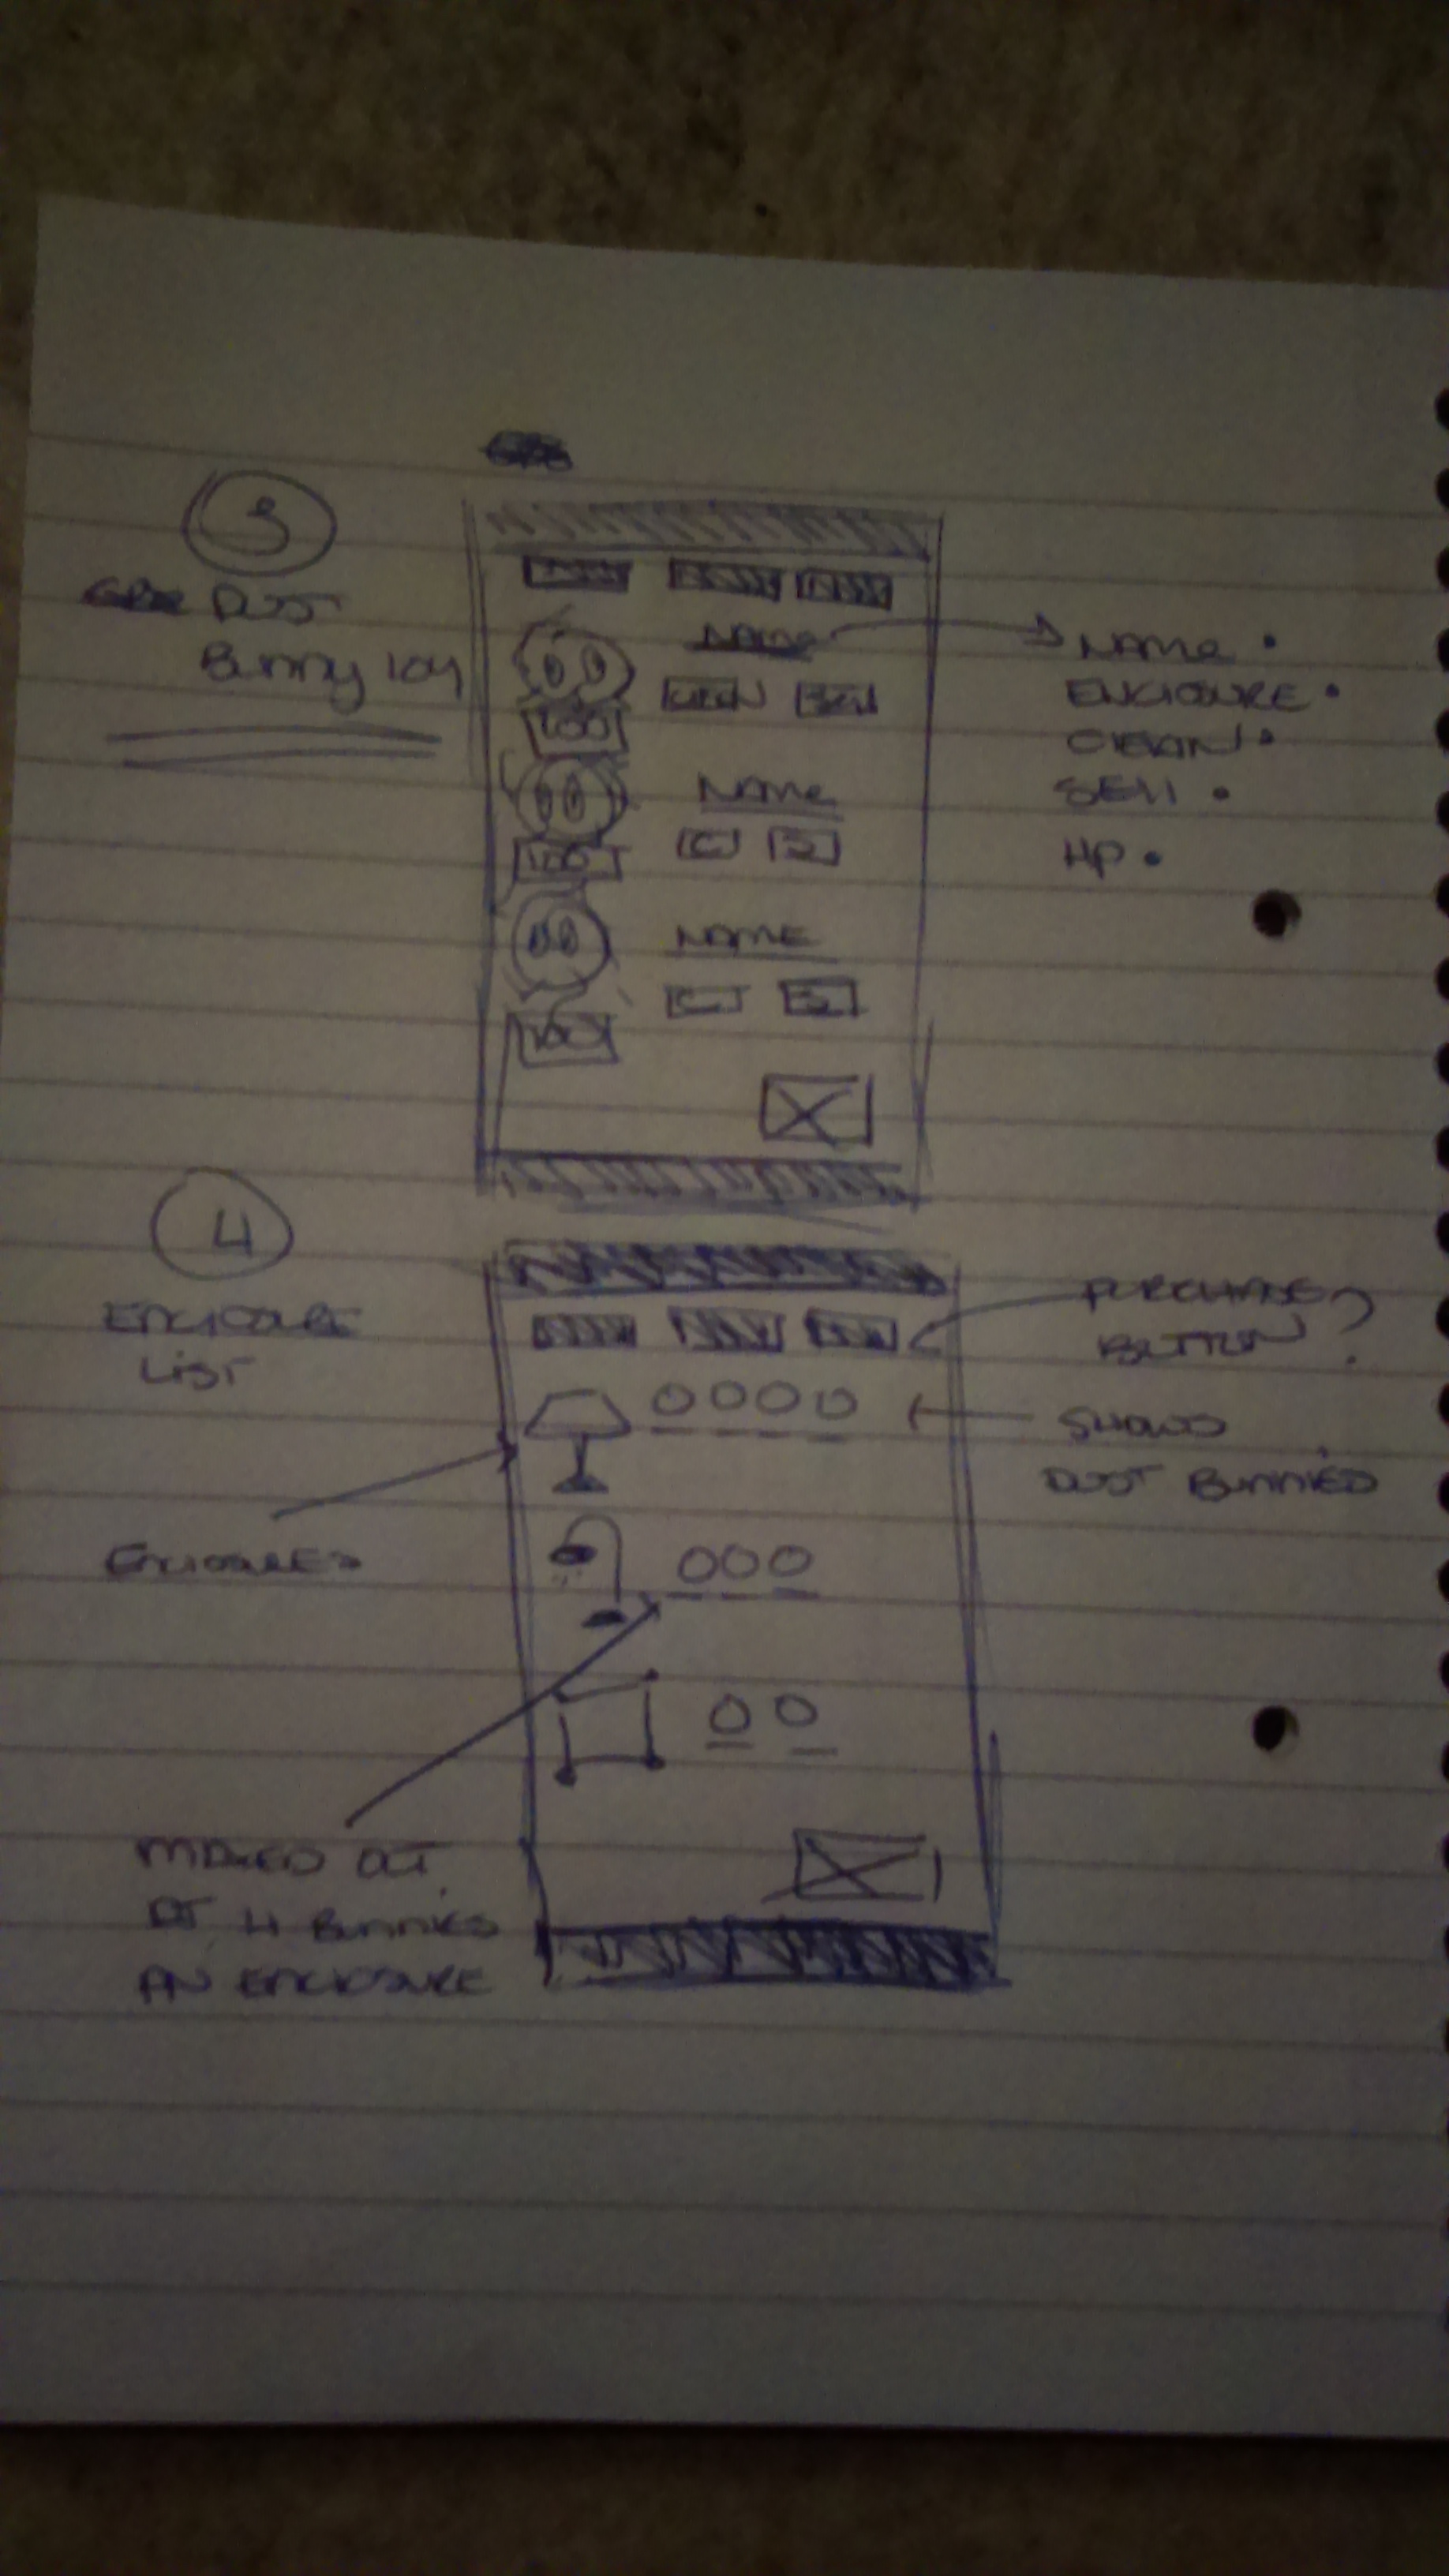 3
DUST
Bunny
NAME
CLEAN SELL
100
NAME
C S
100
NAME
C S
100
NAME •
ENCLOSURE •
CLEAN •
SELL •
HP •
4
ENCLOSURE
LIST
PURCHASE
BUTTON?
SHOWS
DUST BUNNIES
ENCLOSURES
MAXED OUT
AT 4 BUNNIES
AN ENCLOSURE